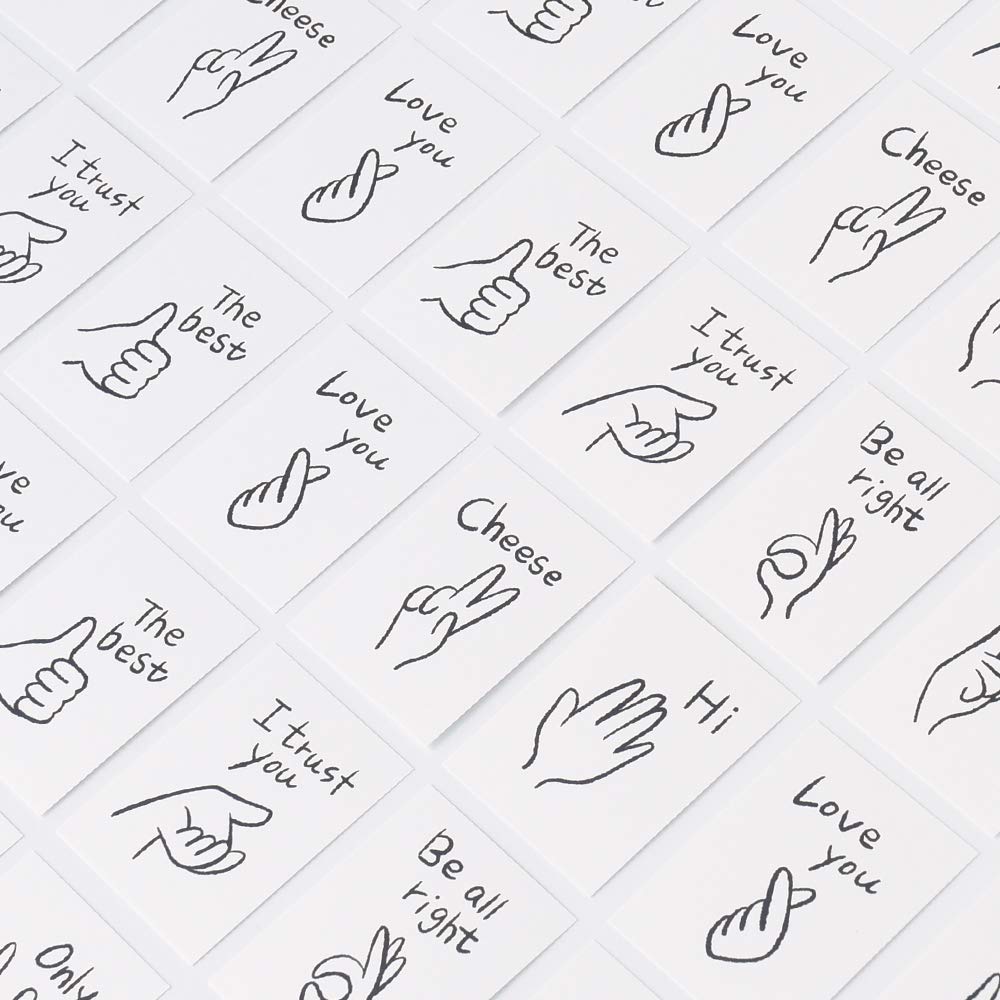 Cheese
Love
you
Love
you
Cheese
I trust
you
The
best
The
best
I trust
you
Love
you
Be all
right
Cheese
The
best
Hi
I trust
you
Love
you
Be all
right
Only